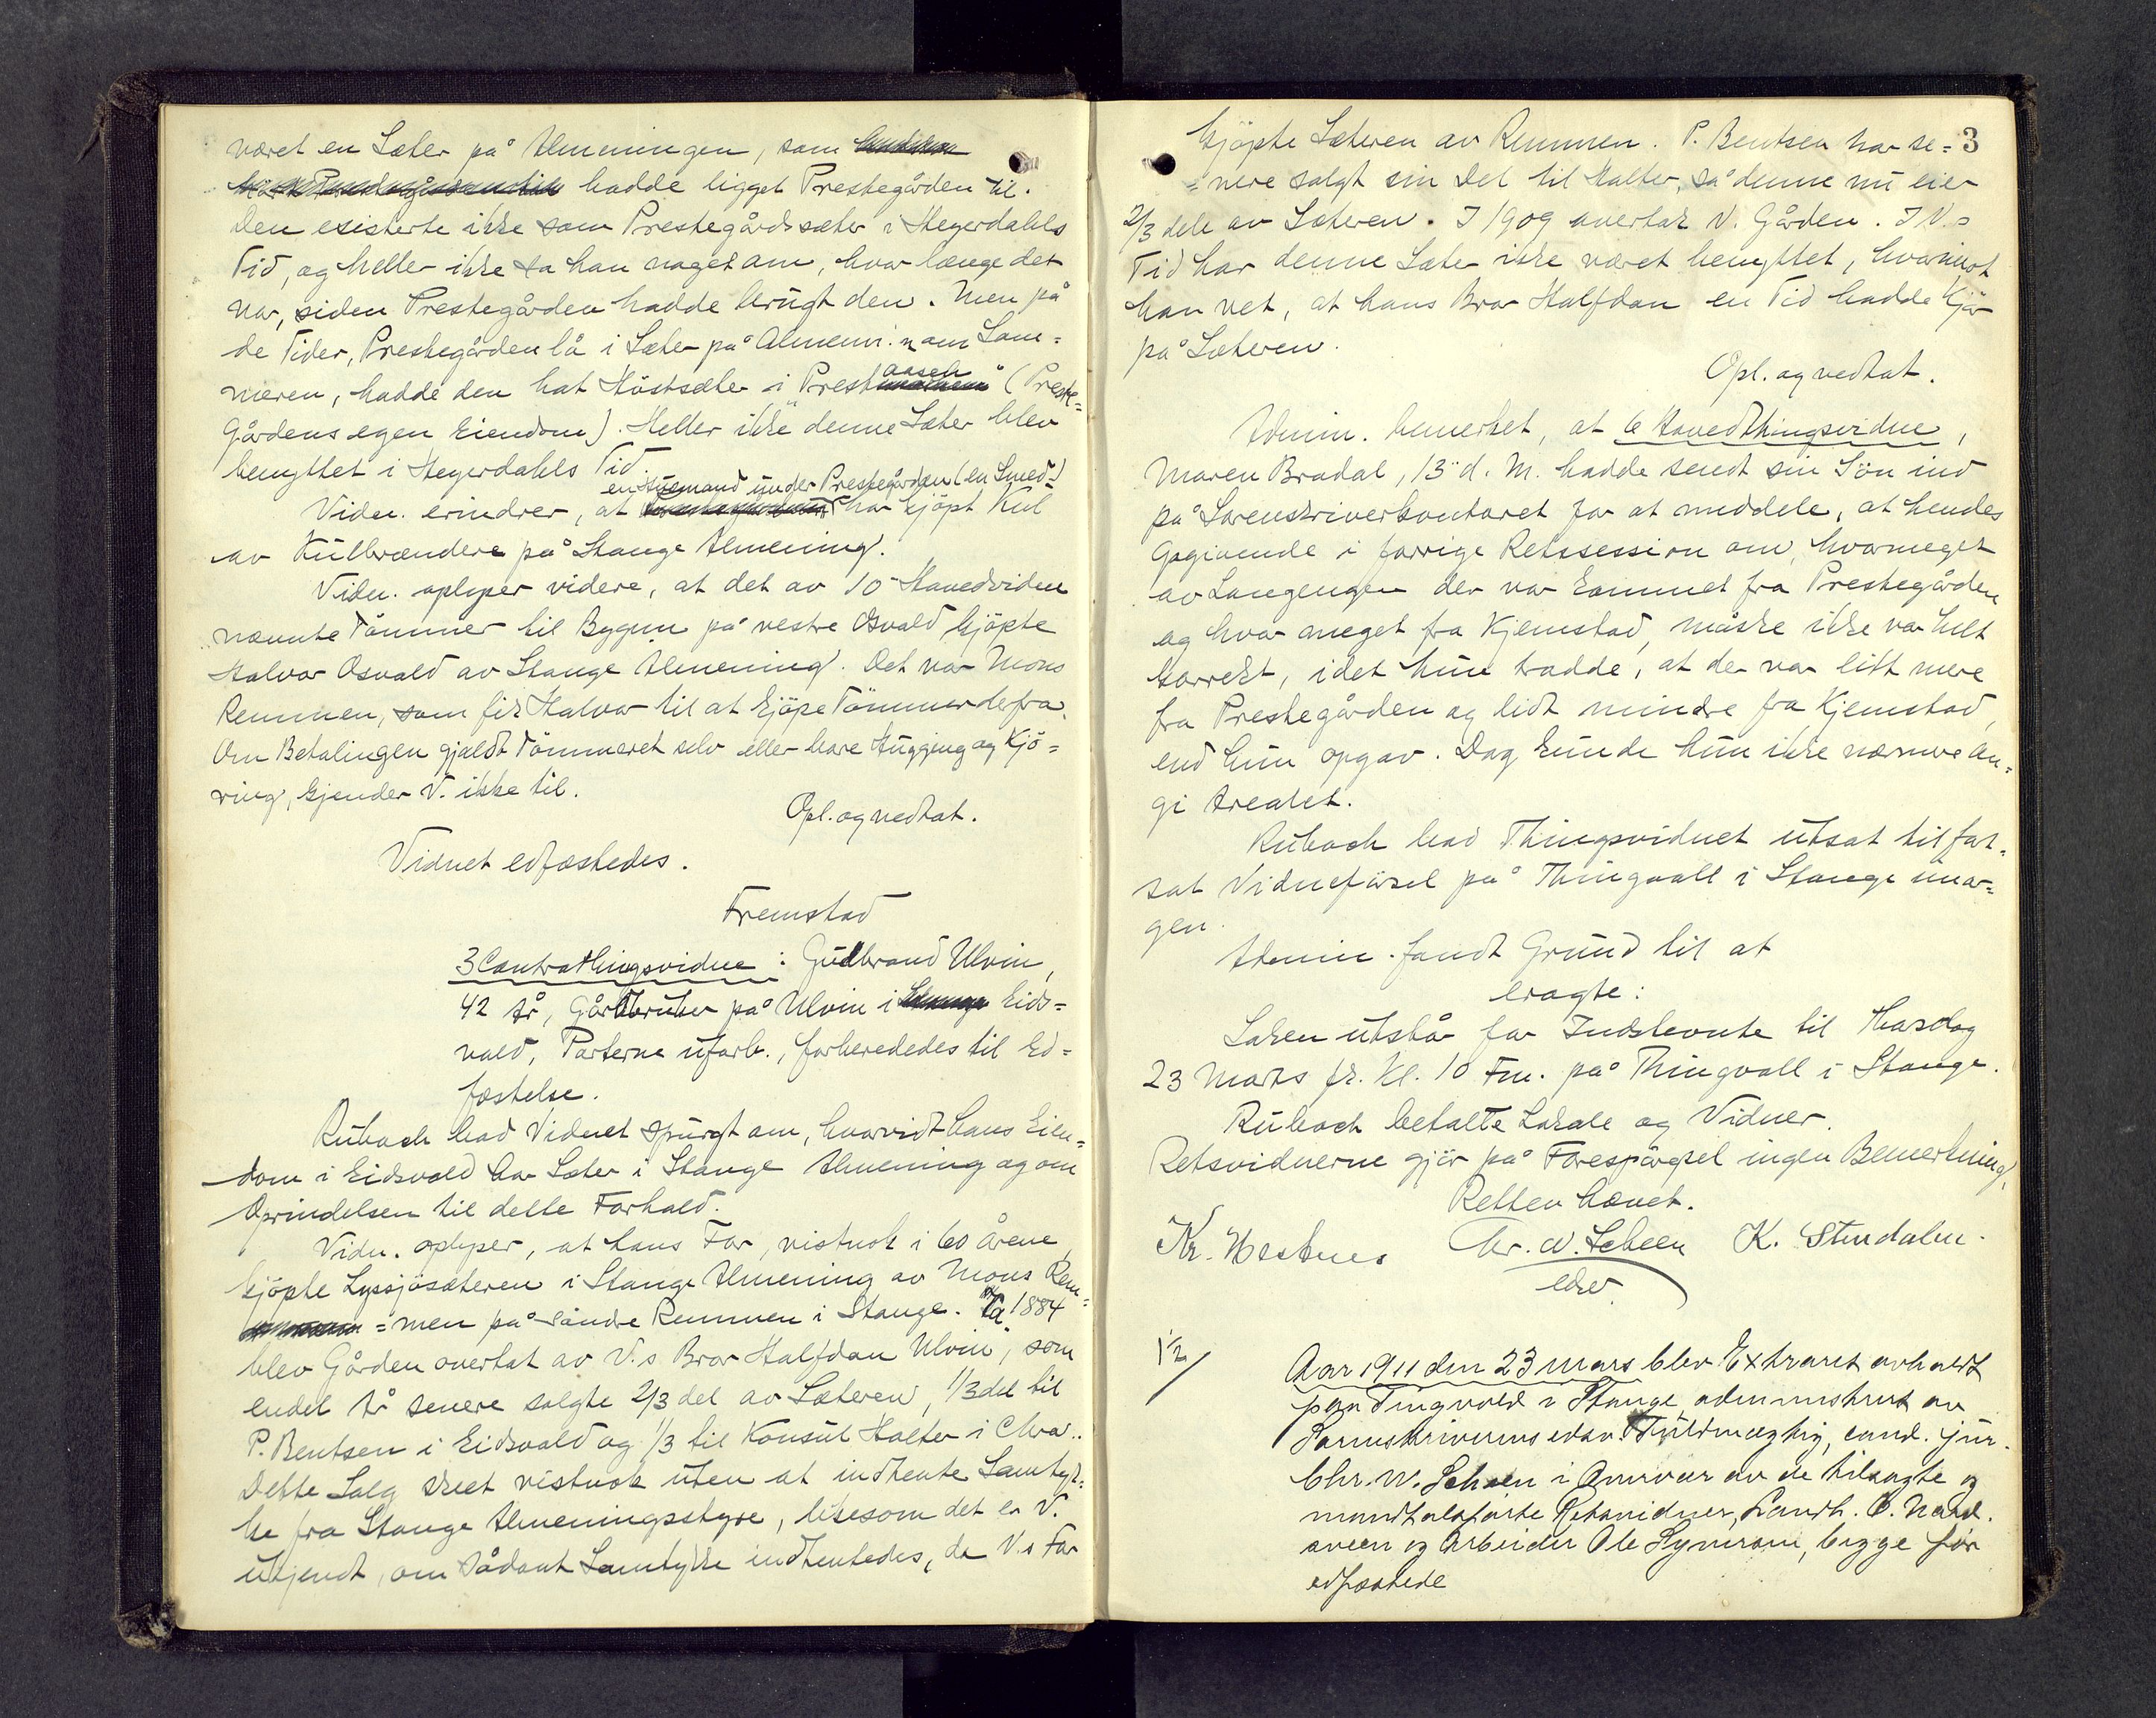 været en Sæter på Almeningen, som
hadde ligget Prestegården til.
Den esisterte ikke som Prestegårdssæter i Heyerdahls
Tid, og heller ikke sa han noget om, hvor længe det
var, siden Prestegården hadde brugt den. Men på
de Tider, Prestegården lå i Sæter på Almenn. om Som=
meren, hadde den hat Höstsæter i Prestaasen (Preste=
Gårdens egen Eiendom). Heller ikke denne Sæter blev
benyttet i Heyerdahls Tid.
en Husmand under Prestegården (en Smed)
Vidn. erindrer, at har kjöpt Kul
av Kulbrændere på Stange Almening.
Vidn. oplyser videre, at det av 10 Hovedvidne
nævnte Tömmer til Bygn. på vestre Osvald kjöpte
Halvor Osvald av Stange Almening. Det var Mons
Remmen, som fik Halvor til at kjöpe Tömmer derfra.
Om Betalingen gjaldt Tömmeret selv eller bare Hugging og Kjö=
ring, kjender V. ikke til.
Opl. og vedtat.
Vidnet edfæstedes.
Fremstod
3 Contrathingsvidne: Gudbrand Ulvin,
42 År, Gårdbruker på Ulvin i Eids=
vold, Parterne uforb., forberededes til Ed=
fæstelse.
Rubach bad Vidnet spurgt om, hvorvidt hans Eien=
dom i Eidsvold har Sæter i Stange Almening og om
Oprindelsen til dette Forhold.
Vidn. oplyser, at hans Far, vistnok i 60 Årene,
kjöpte Lyssjösæteren i Stange Almening av Mons Rem=
=men på söndre Remmen i Stange. Ca. 1884
blev Gården overtat av V.s Bror Halfdan Ulvin, som
endel År senere solgte 2/3 del av Sæteren, 1/3 del til
P. Bentsen i Eidsvold og 1/3 til Konsul Halter i Chra..
Dette Salg skeet vistnok uten at indhente Samtyk=
ke fra Stange Almeningsstyre, likesom det er V.
ukjendt, om sådant Samtykke indhentedes, da V.s Far
kjöpte Sæteren av Remmen. P. Bentsen har se= 3
=nere solgt sin Del til Halter, så denne nu eier
2/3 dele av Sæteren. I 1909 overtok V. Gården. I V.s
Tid har denne Sæter ikke været benyttet, hvorimot
han vet, at hans Bror Halfdan en Tid hadde Kjör
på Sæteren.
Opl. og vedtat.
Admin. bemerket, at 6 Hovedthingsvidne,
Maren Bradal, 13 d. M. hadde sendt sin Sön ind
på Sorenskriverkontoret for at meddele, at hendes
Opgivende i forrige Retssession om, hvormeget
av Langengen der var kommet fra Prestegården
og hvor meget fra Kjemstad, måske ikke var helt
korrekt, idet hun trodde, at der var litt mere
fra Prestegården og lidt mindre fra Kjemstad,
end hun opgav. Dog kunde hun ikke nærmere an=
gi Arealet.
Rubach bad Thingsvidnet utsat til fort=
sat Vidneförsel på Thingvall i Stange imor=
gen.
Admin. fandt Grund til at
eragte:
Saken utstår for Indstevnte til Thorsdag
23 Marts fk. Kl. 10 Fm. på Thingvall i Stange.
Rubach betalte Lokale og Vidner.
Retsvidnerne gjör på Forespörgsel ingen Bemerkning.
Retten hævet.
Kr. Westnes Chr. W. Scheen K. Stendalen.
edsv.
1½/
Aar 1911 den 23 mars blev Extraret avholdt
paa Tingvold i Stange, administrert av
Sorenskriverens edsv. Fuldmægtig, cand. jur.
Chr. W. Scheen i Overvær av de tilsagte og
mandtalsförte Retsvidner, Landh. O. Nord.
sveen og Arbeider Ole Hymroen, begge för
edfæstede